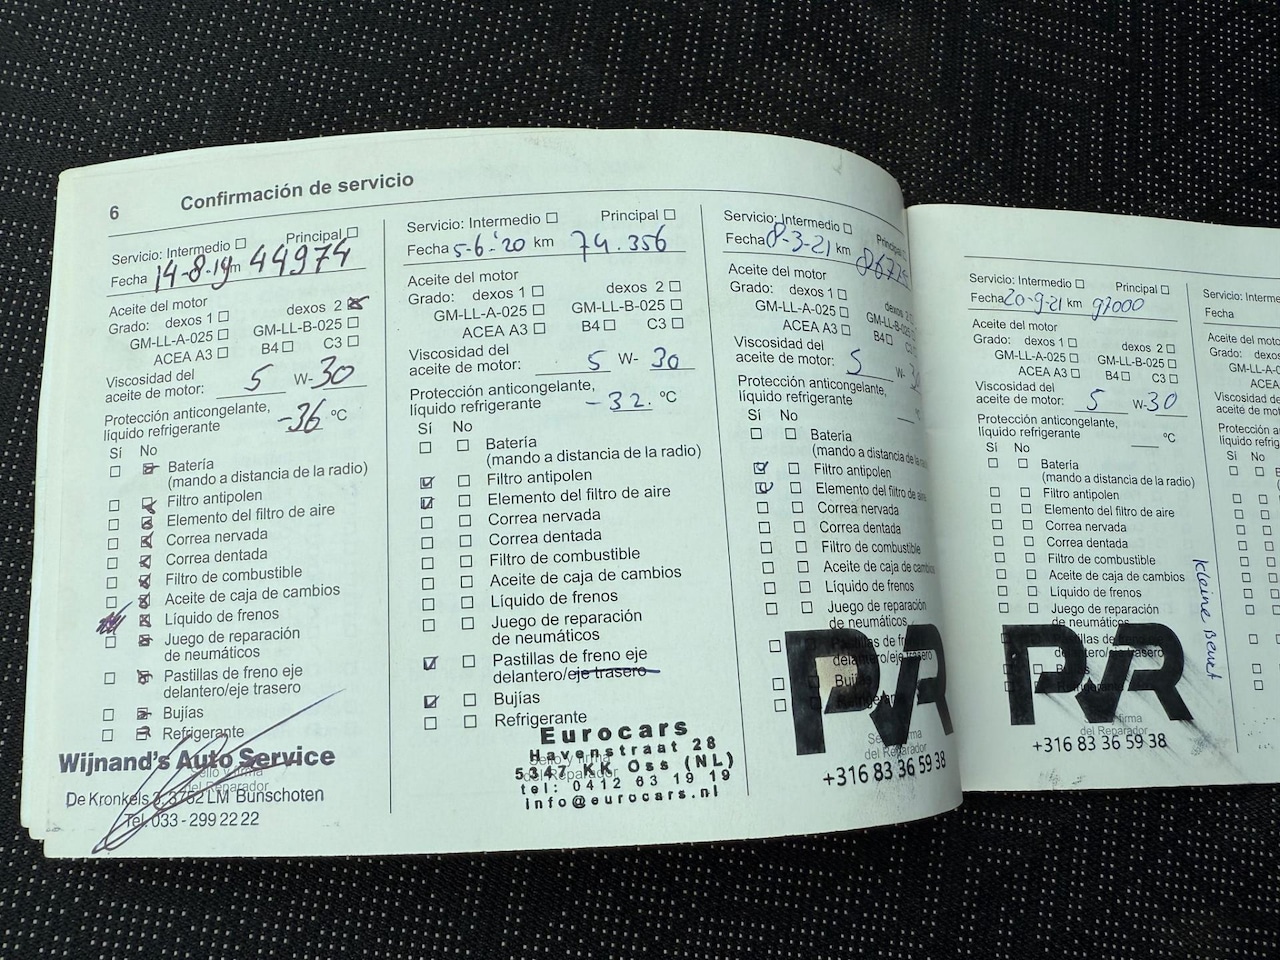 6 Confirmación de servicio
Servicio: Intermedio Principal
Fecha 14-8-19 km 44974
Aceite del motor
Grado: dexos 1 dexos 2
GM-LL-A-025 GM-LL-B-025
ACEA A3 B4 C3
Viscosidad del
aceite de motor: 5 W-30
Protección anticongelante,
líquido refrigerante -36 °C
Sí No
Batería
(mando a distancia de la radio)
Filtro antipolen
Elemento del filtro de aire
Correa nervada
Correa dentada
Filtro de combustible
Aceite de caja de cambios
Líquido de frenos
Juego de reparación
de neumáticos
Pastillas de freno eje
delantero/eje trasero
Bujías
Refrigerante
Sello y firma
del Reparador
Wijnand's Auto Service
De Kronkels 3, 3752 LM Bunschoten
Tel. 033 - 299 22 22
Servicio: Intermedio Principal
Fecha 5-6-'20 km 74.356
Aceite del motor
Grado: dexos 1 dexos 2
GM-LL-A-025 GM-LL-B-025
ACEA A3 B4 C3
Viscosidad del
aceite de motor: 5 W- 30
Protección anticongelante,
líquido refrigerante -32. °C
Sí No
Batería
(mando a distancia de la radio)
Filtro antipolen
Elemento del filtro de aire
Correa nervada
Correa dentada
Filtro de combustible
Aceite de caja de cambios
Líquido de frenos
Juego de reparación
de neumáticos
Pastillas de freno eje
delantero/eje trasero
Bujías
Refrigerante
Sello y firma
del Reparador
Eurocars
Havenstraat 28
5347 KK Oss (NL)
tel: 0412 63 19 19
info@eurocars.nl
Servicio: Intermedio Principal
Fecha 8-3-21 km
Aceite del motor
Grado: dexos 1 dexos 2
GM-LL-A-025 GM-LL-B-025
ACEA A3 B4
Viscosidad del
aceite de motor: 5 W-
Protección anticongelante,
líquido refrigerante
Sí No
Batería
(mando a distancia de la
Filtro antipolen
Elemento del filtro de aire
Correa nervada
Correa dentada
Filtro de combustible
Aceite de caja de cambios
Líquido de frenos
Juego de reparación
de neumáticos
Pastillas de freno eje
delantero/eje trasero
Bujías
Refrigerante
Sello y firma
del Reparador
PVR
+316 83 36 59 38
Servicio: Intermedio Principal
Fecha 20-9-21 km 97000
Aceite del motor
Grado: dexos 1 dexos 2
GM-LL-A-025 GM-LL-B-025
ACEA A3 B4 C3
Viscosidad del
aceite de motor: 5 W-30
Protección anticongelante,
líquido refrigerante °C
Sí No
Batería
(mando a distancia de la radio)
Filtro antipolen
Elemento del filtro de aire
Correa nervada
Correa dentada
Filtro de combustible
Aceite de caja de cambios
Líquido de frenos
Juego de reparación
de neumáticos
Pastillas de freno eje
delantero/eje trasero
Bujías
Refrigerante
Sello y firma
del Reparador
PVR
+316 83 36 59 38
Kleine Beurt
Servicio:
Fecha
Aceite del
Grado:
GM-LL-A-
ACEA
Viscosidad
aceite de
líquido
Sí No